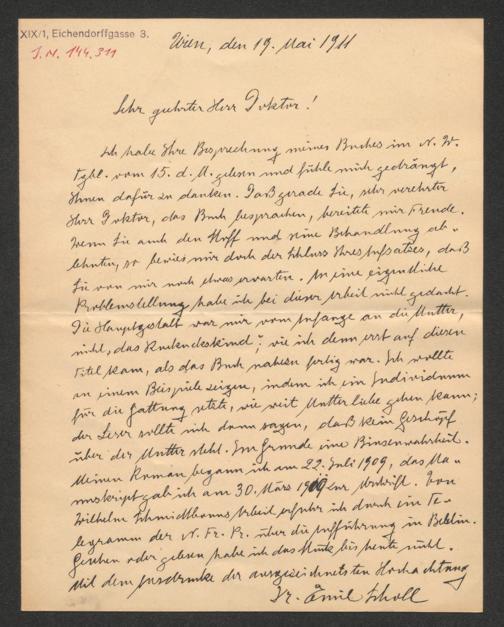 XIX/1, Eichendorffgasse 3.
J. N. 144.311
Wien, den 19. Mai 1911
Sehr geehrter Herr Doktor!
Ich habe Ihre Besprechung meines Buches im N. W.
Tgbl. vom 15. d. M. gelesen und fühle mich gedrängt,
Ihnen dafür zu danken. Daß gerade Sie, sehr verehrter
Herr Doktor, das Buch besprachen, bereitet mir Freude.
Wenn Sie auch den Stoff und seine Behandlung ab-
lehnten, so bewies mir doch der Schluss Ihres Aufsatzes, daß
Sie von mir noch etwas erwarten. An eine eigentliche
Problemstellung habe ich bei dieser Arbeit nicht gedacht.
Die Hauptgestalt war mir vom Anfange an die Mutter,
nicht „das Kuckuckskind“, wie ich denn erst auf diesen
Titel kam, als das Buch nahezu fertig war. Ich wollte
an einem Beispiele zeigen, indem ich ein Individuum
für die Gattung setzte, wie weit Mutterliebe gehen kann;
der Leser sollte sich dann sagen, daß kein Geschöpf
über der Mutter steht. Im Grunde eine Binsenwahrheit.
Meinen Roman begann ich am 22. Juli 1909, das Ma-
nuskript gab ich am 30. März 1910 zur
Wilhelm Schmidtbonns Arbeit erfuhr ich durch ein Te-
legramm der N. Fr. Pr. über die Aufführung in Berlin.
Gesehen oder gelesen habe ich das Stück bis heute nicht.
Mit dem Ausdrucke der ausgezeichnetsten Hochachtung
Dr. Emil Scholl